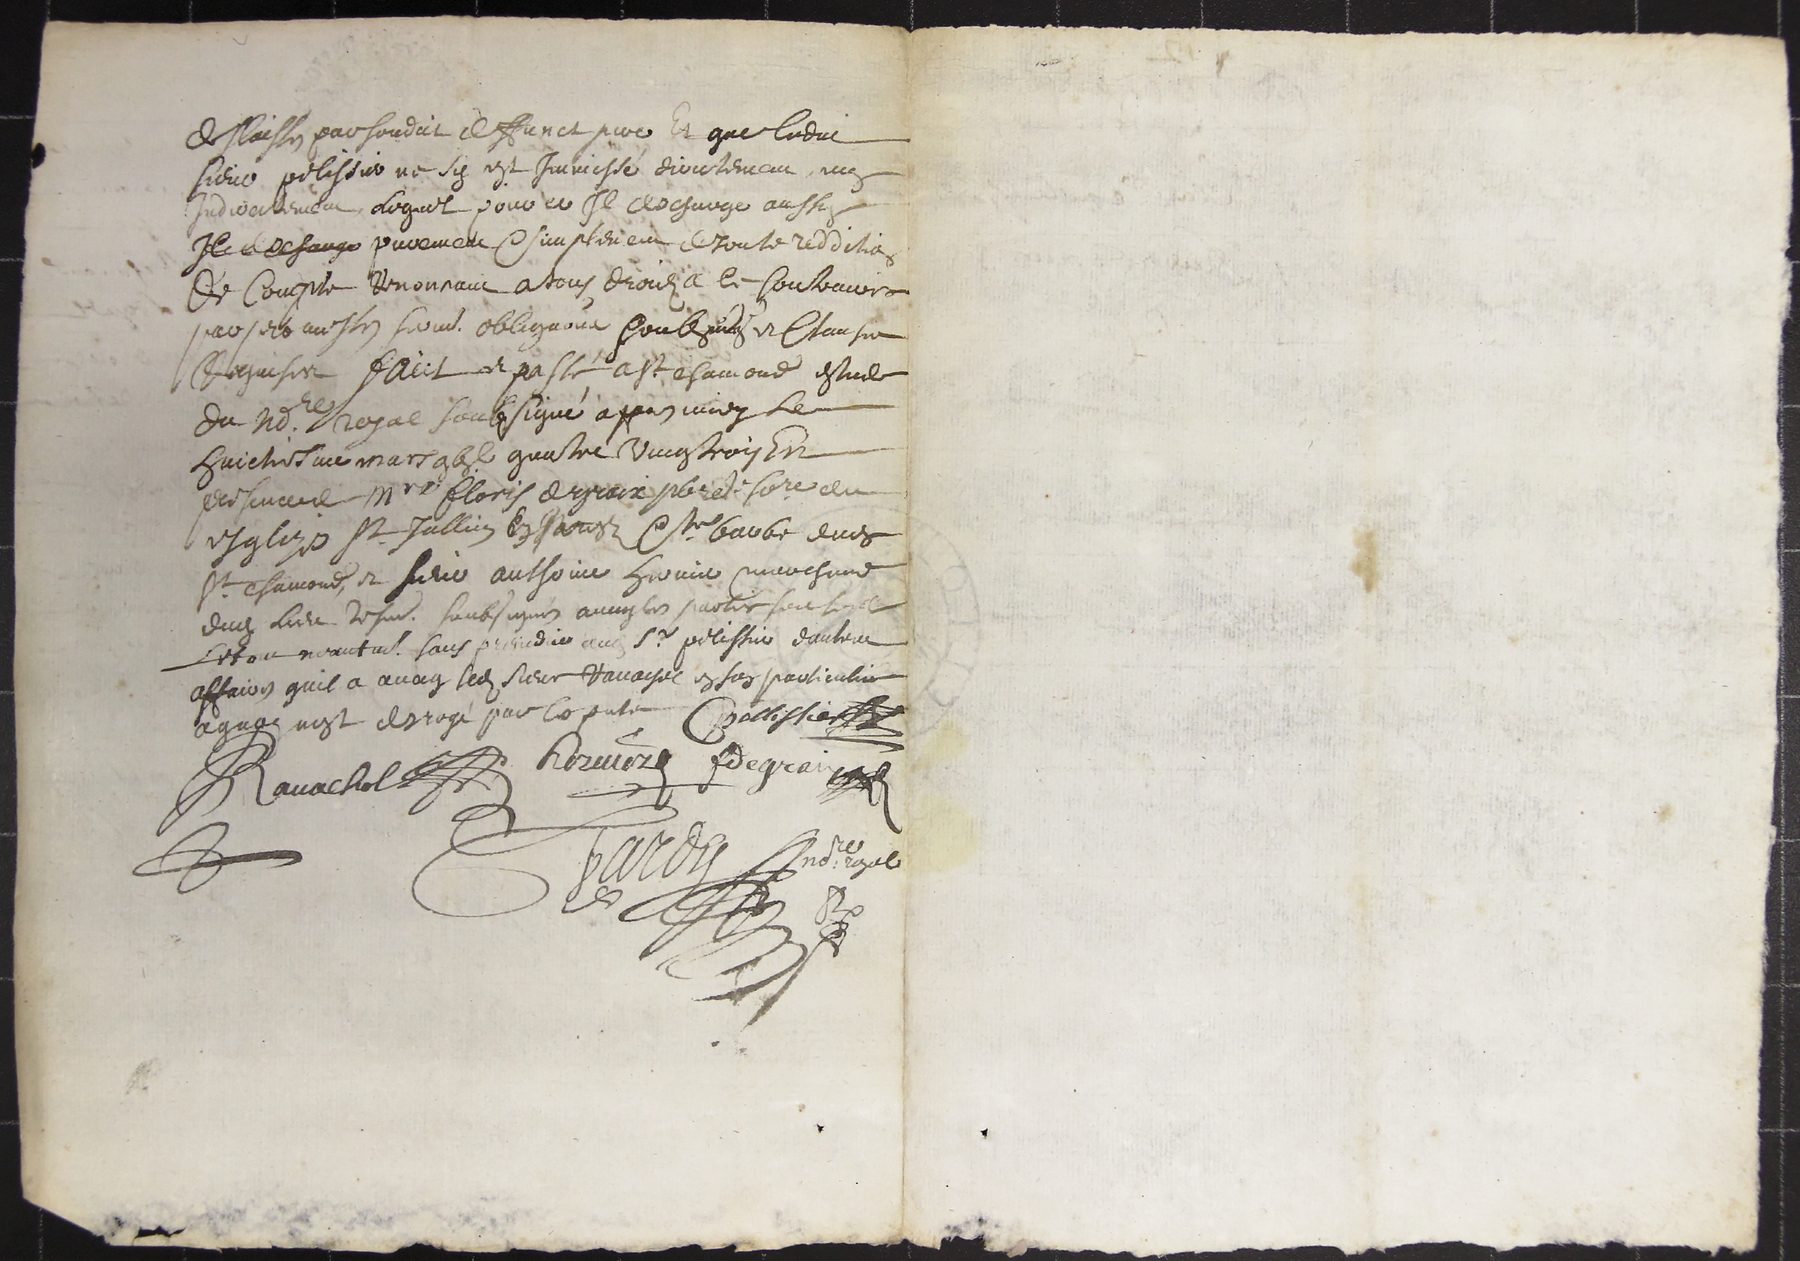 delaissés par sondit deffunct pere Et que ledit
sieur pelissier ne sy est Immissé directement, ny
Indirectement, duquel pour ce Il descharge aussy
Il descharge purement & simplement de toute reddition
De Compte Renonçant a tous droicts a ce contraires
par promesses serment obligations soubsmissions et Clauses
Requises faict et passé a st chamond estude
du no.re royal soubsigné appres midy Le
huictiesme mars gbjc quatre vingtz trois En
presence de Mre floris degraix pbre
esglizes st Jullien & ste barbe dudt
st chamond, et sieur anthoine marchand
dudt lieu soubsignés avecq les parties
sans prejudice audt sr pelissier dautres
affaires quil a avecq ledt sieur Ravachol en son particulier
a quoy nest desrogé par les pntes Pellissier
Ravachol fdegraix
Tardy no.re royal